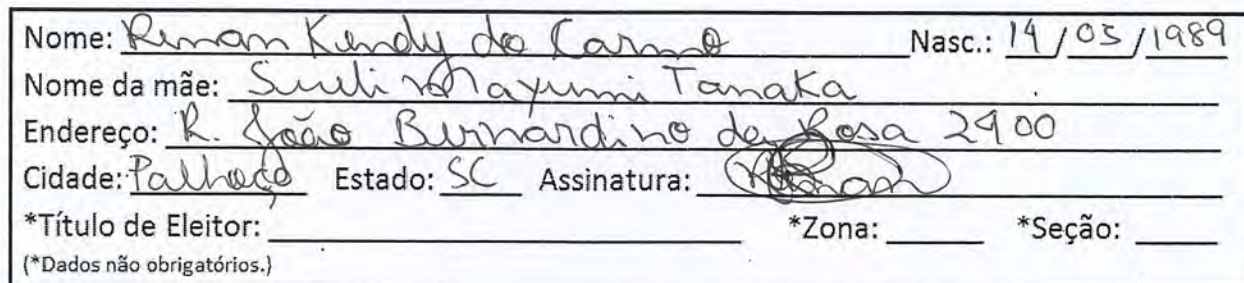 Nome: Renan Kendy do Carmo Nasc.: 14/05/1989
Nome da mãe: Sueli Mayumi Tanaka
Endereço: R. João Bernardino da Rosa 2400
Cidade: Palhoça Estado: SC Assinatura: Renan
*Título de Eleitor: *Zona: *Seção:
(*Dados não obrigatórios.)